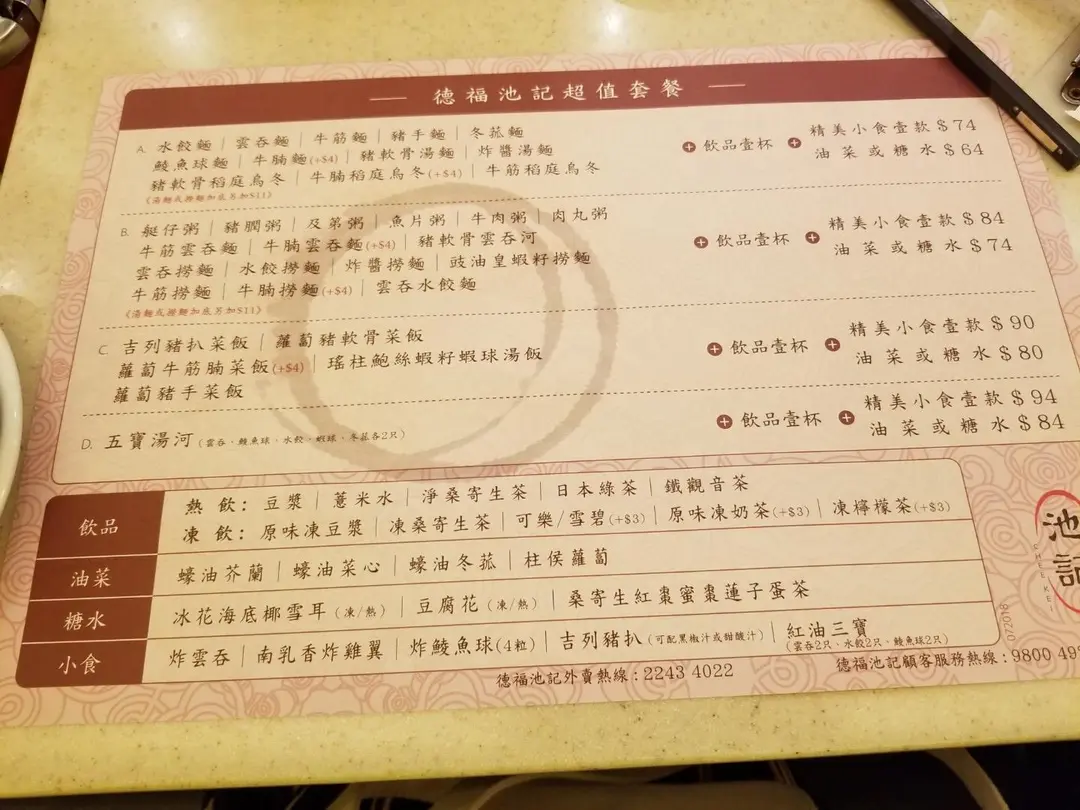 德福池記超值套餐
A. 水餃麵 | 雲吞麵 | 牛筋麵 | 豬手麵 | 冬菰麵
鯪魚球麵 | 牛腩麵(+$4) | 豬軟骨湯麵 | 炸醬湯麵
豬軟骨稻庭烏冬 | 牛腩稻庭烏冬(+$4) | 牛筋稻庭烏冬
《湯麵或撈麵加底另加$11》
+ 飲品壹杯 + 精美小食壹款 $74
油菜或糖水 $64
B. 艇仔粥 | 豬膶粥 | 及第粥 | 魚片粥 | 牛肉粥 | 肉丸粥
牛筋雲吞麵 | 牛腩雲吞麵(+$4) | 豬軟骨雲吞河
雲吞撈麵 | 水餃撈麵 | 炸醬撈麵 | 豉油皇蝦籽撈麵
牛筋撈麵 | 牛腩撈麵(+$4) | 雲吞水餃麵
《湯麵或撈麵加底另加$11》
+ 飲品壹杯 + 精美小食壹款 $84
油菜或糖水 $74
C. 吉列豬扒菜飯 | 蘿蔔豬軟骨菜飯
蘿蔔牛筋腩菜飯(+$4) | 瑤柱鮑絲蝦籽蝦球湯飯
蘿蔔豬手菜飯
+ 飲品壹杯 + 精美小食壹款 $90
油菜或糖水 $80
D. 五寶湯河(雲吞、鯪魚球、水餃、蝦球、冬菰各2只)
+ 飲品壹杯 + 精美小食壹款 $94
油菜或糖水 $84
飲品
熱飲: 豆漿 | 薏米水 | 淨桑寄生茶 | 日本綠茶 | 鐵觀音茶
凍飲: 原味凍豆漿 | 凍桑寄生茶 | 可樂/雪碧(+$3) | 原味凍奶茶(+$3) | 凍檸檬茶(+$3)
油菜
蠔油芥蘭 | 蠔油菜心 | 蠔油冬菰 | 柱侯蘿蔔
糖水
冰花海底椰雪耳(凍/熱) | 豆腐花(凍/熱) | 桑寄生紅棗蜜棗蓮子蛋茶
小食
炸雲吞 | 南乳香炸雞翼 | 炸鯪魚球(4粒) | 吉列豬扒(可配黑椒汁或甜酸汁) | 紅油三寶
(雲吞2只、水餃2只、鯪魚球2只)
德福池記外賣熱線:2243 4022
德福池記顧客服務熱線:9800 49
池記
CHEE KEI
0/2018